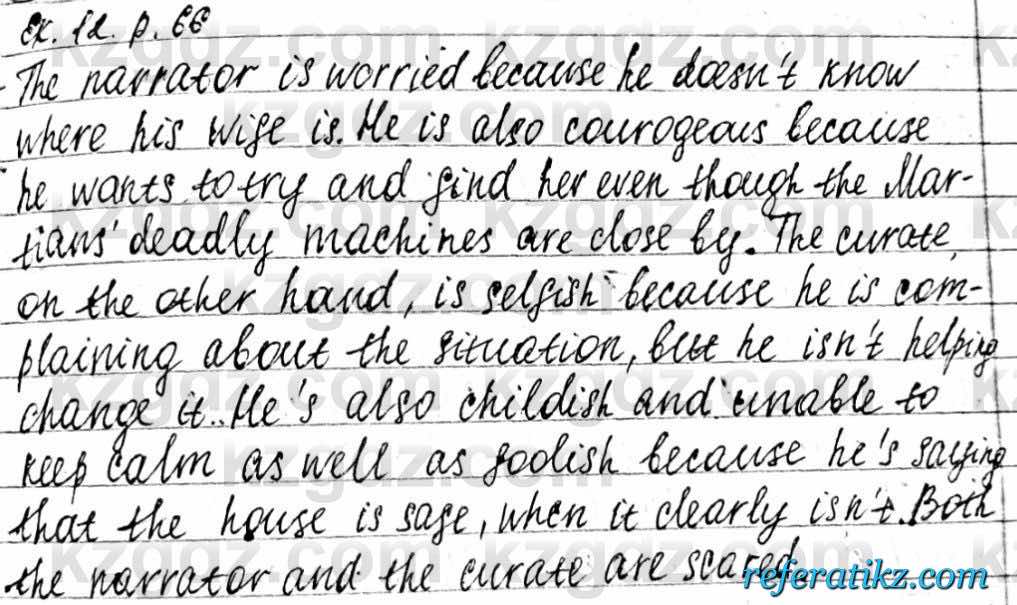 Ex. 12. p. 66
The narrator is worried because he doesn't know
where his wife is. He is also courogeous because
he wants to try and find her even though the Mar-
tians' deadly machines are close by. The curate,
on the other hand, is selfish because he is com-
plaining about the situation, but he isn't helping
change it. He's also childish and unable to
keep calm as well as foolish because he's saying
that the house is safe, when it clearly isn't. Both
the narrator and the curate are scared.
referatikz.com
kzgdz.com